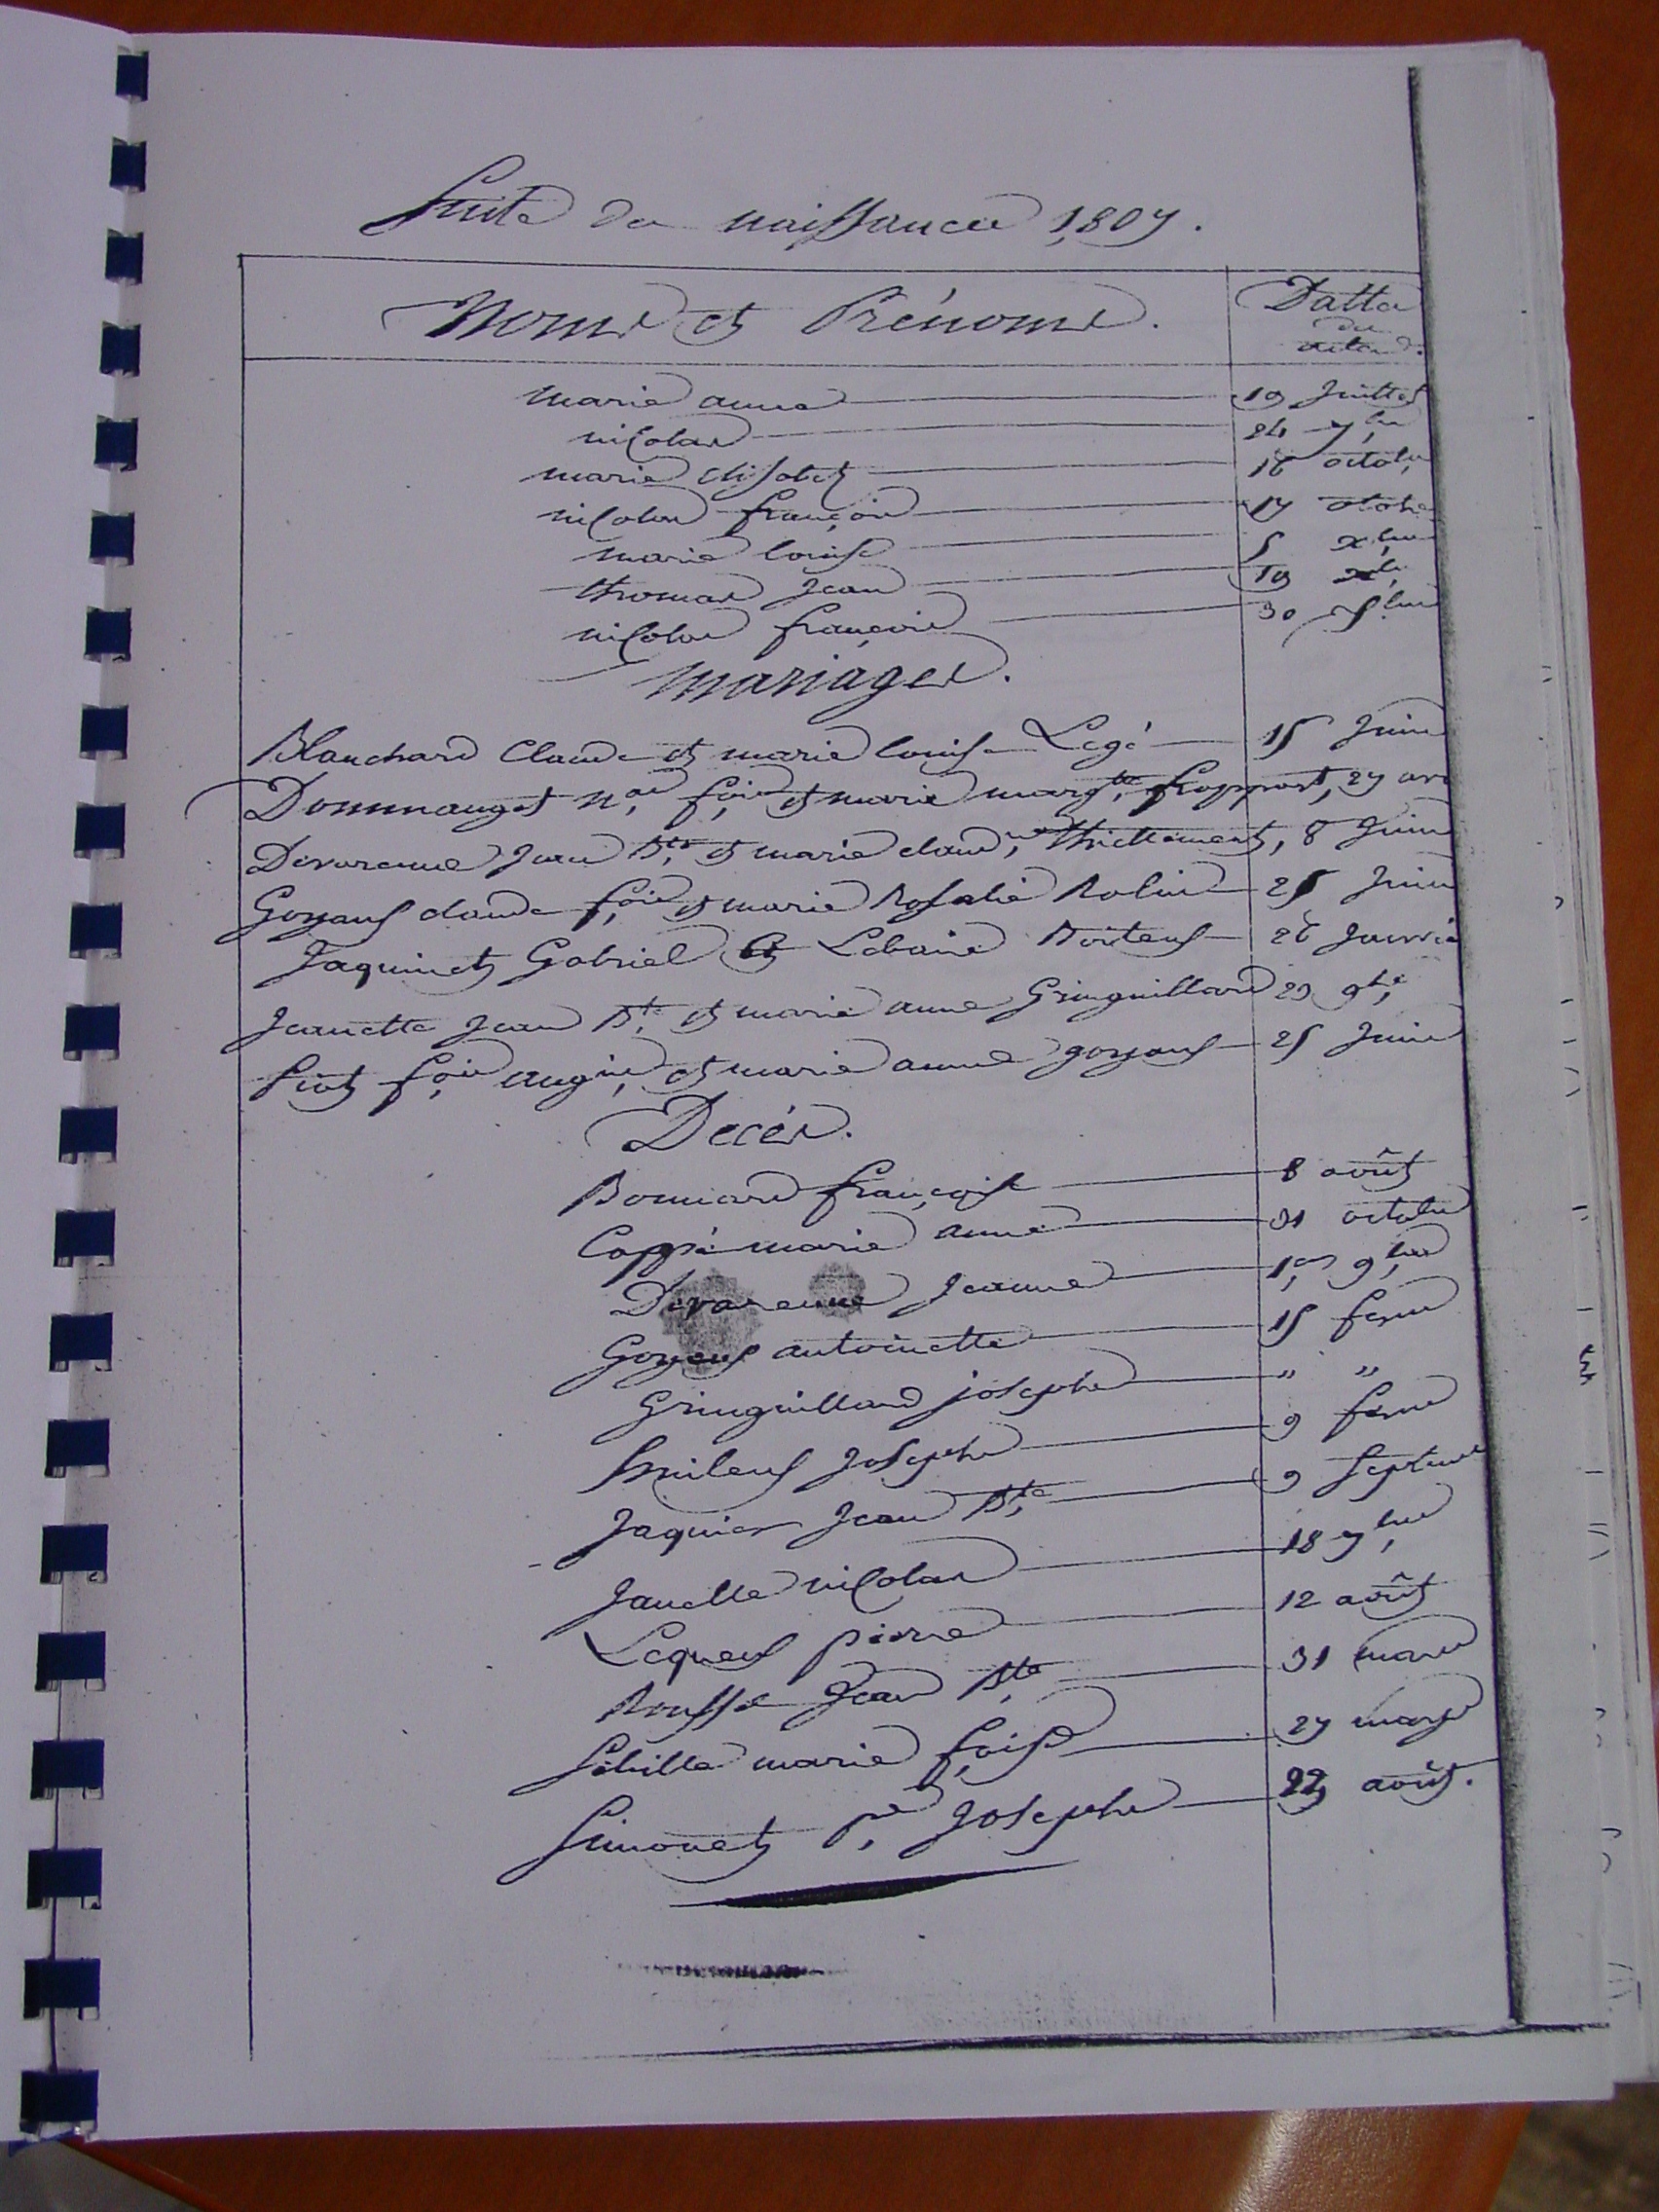 Suite de naissances 1807.
Noms et Prénoms. Dattes
des
actes
marie anne 19 Juillet
nicolas 24 7bre
marie Elisabet 16 octobre
nicolas françois 17 octobre
marie louise 5 xbre
thomas Jean 19 xbre
nicolas françois 30
mariages.
Blanchard Claude et marie louise Legé 15 Juin
Dommanget nas fois et marie margte froppart, 27 avr
Devarenne Jean Bte et marie claude thiellement, 8 Juin
Goyeux claude fois et marie Rosalie Rolin 25 Juin
Jaquinet Gabriel et Boiteux 26 Janvie
Jeanette Jean Bte et marie anne Gringuillard 23 9bre
Piot fois augin et marie anne goyeux 25 Juin
Decés.
Bonnard françoise 8 août
Coppé marie anne 31 octobre
Devarenne Jeanne 1er 9bre
Goyeux antoinette 15
Gringuillard josephe " "
Joseph 9
Jaquier Jean Bte 9 Septem
nicolas 18 7bre
Lequeux pierre 12 août
Rousse Jean Bte 31 mars
Sébille marie foise 27 mars
Simonet pre Josephe 22 août.